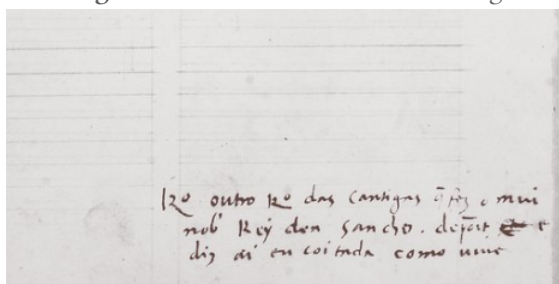 Rº outro Rº das Cantigas q̃ fez o mui
nob Rey don Sancho. de port e
diz ai eu coitada como uiuo